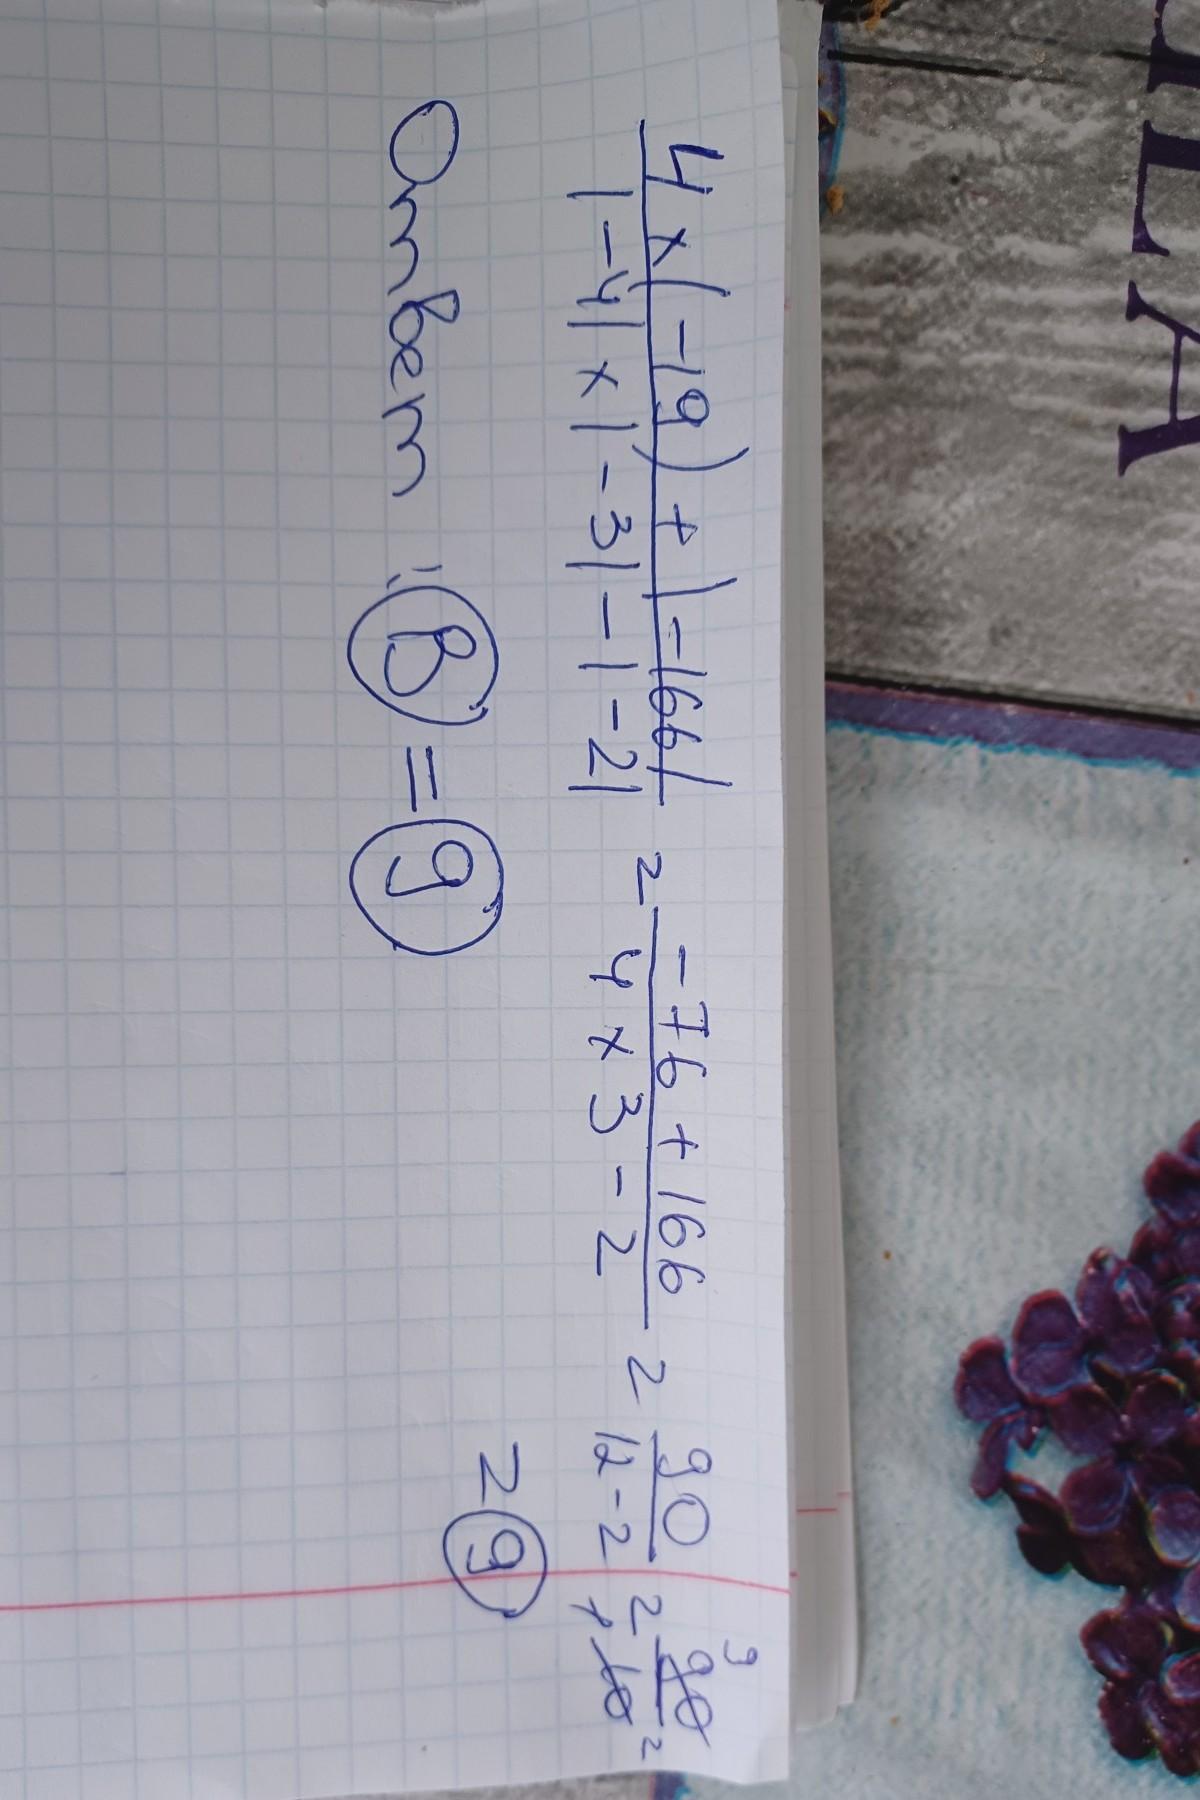 4×(-19)+|-166| / |-4|×|-3|-|-2| = -76+166 / 4×3-2 = 90 / 12-2 = 90 / 10 =
= 9
Ответ "В" = 9